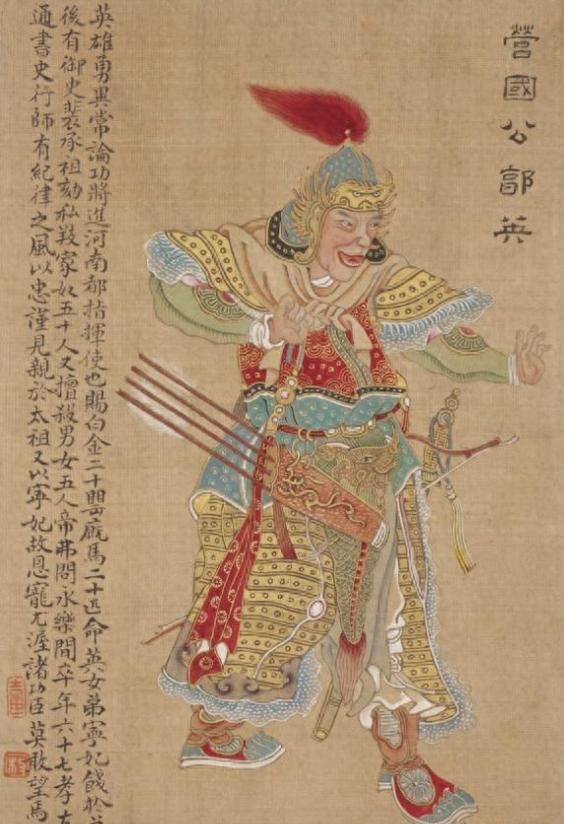 營國公郭英
英雄勇異常論功將進河南都指揮使也賜白金二十罌廄馬二十匹命英女弟寧妃餞於
後有御史裴承祖劾私羖家奴五十人又擅殺男女五人帝弗問永樂間卒年六十七孝友
通書史行師有紀律之風以忠謹見親於太祖又以寧妃故恩寵尤渥諸功臣莫敢望焉